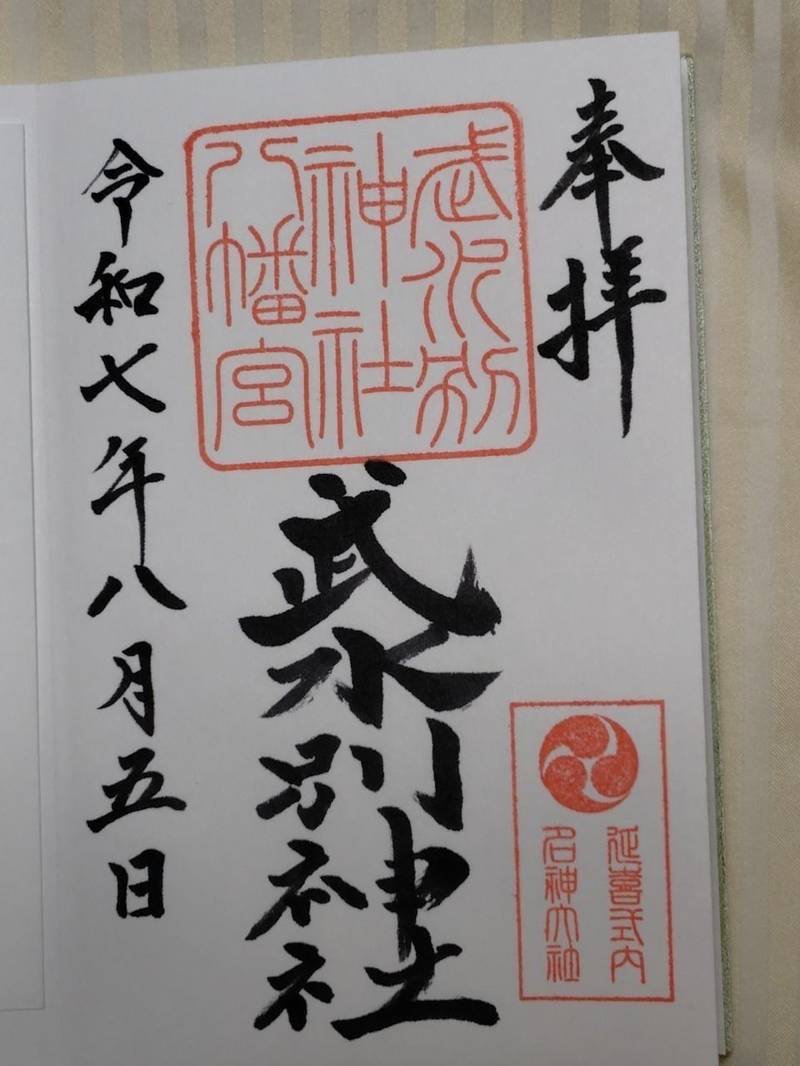 奉拝
武水別
神社
八幡宮
武水別神社
延喜式内
名神大社
令和七年八月五日